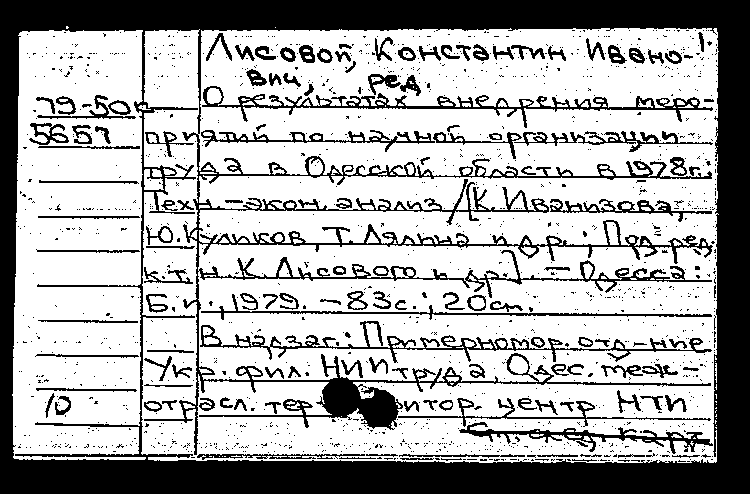 Лисовой, Константин Ивано- 1.
вич, ред.
79-50к О результатах внедрения меро-
5657 приятий по научной организации
труда в Одесской области в 1978г.:
Техн.-экон. анализ /[К. Иванизова,
Ю. Куликов, Т. Лялина и др.; Под ред.
к.т.н. К. Лисового и др]. - Одесса:
Б.и., 1979. - 83с.; 20см.
В надзаг.: Причерномор. отд-ние
Укр. фил. НИИ труда, Одес. меж-
10 отрасл. тер итор. центр НТИ
См. след. карт